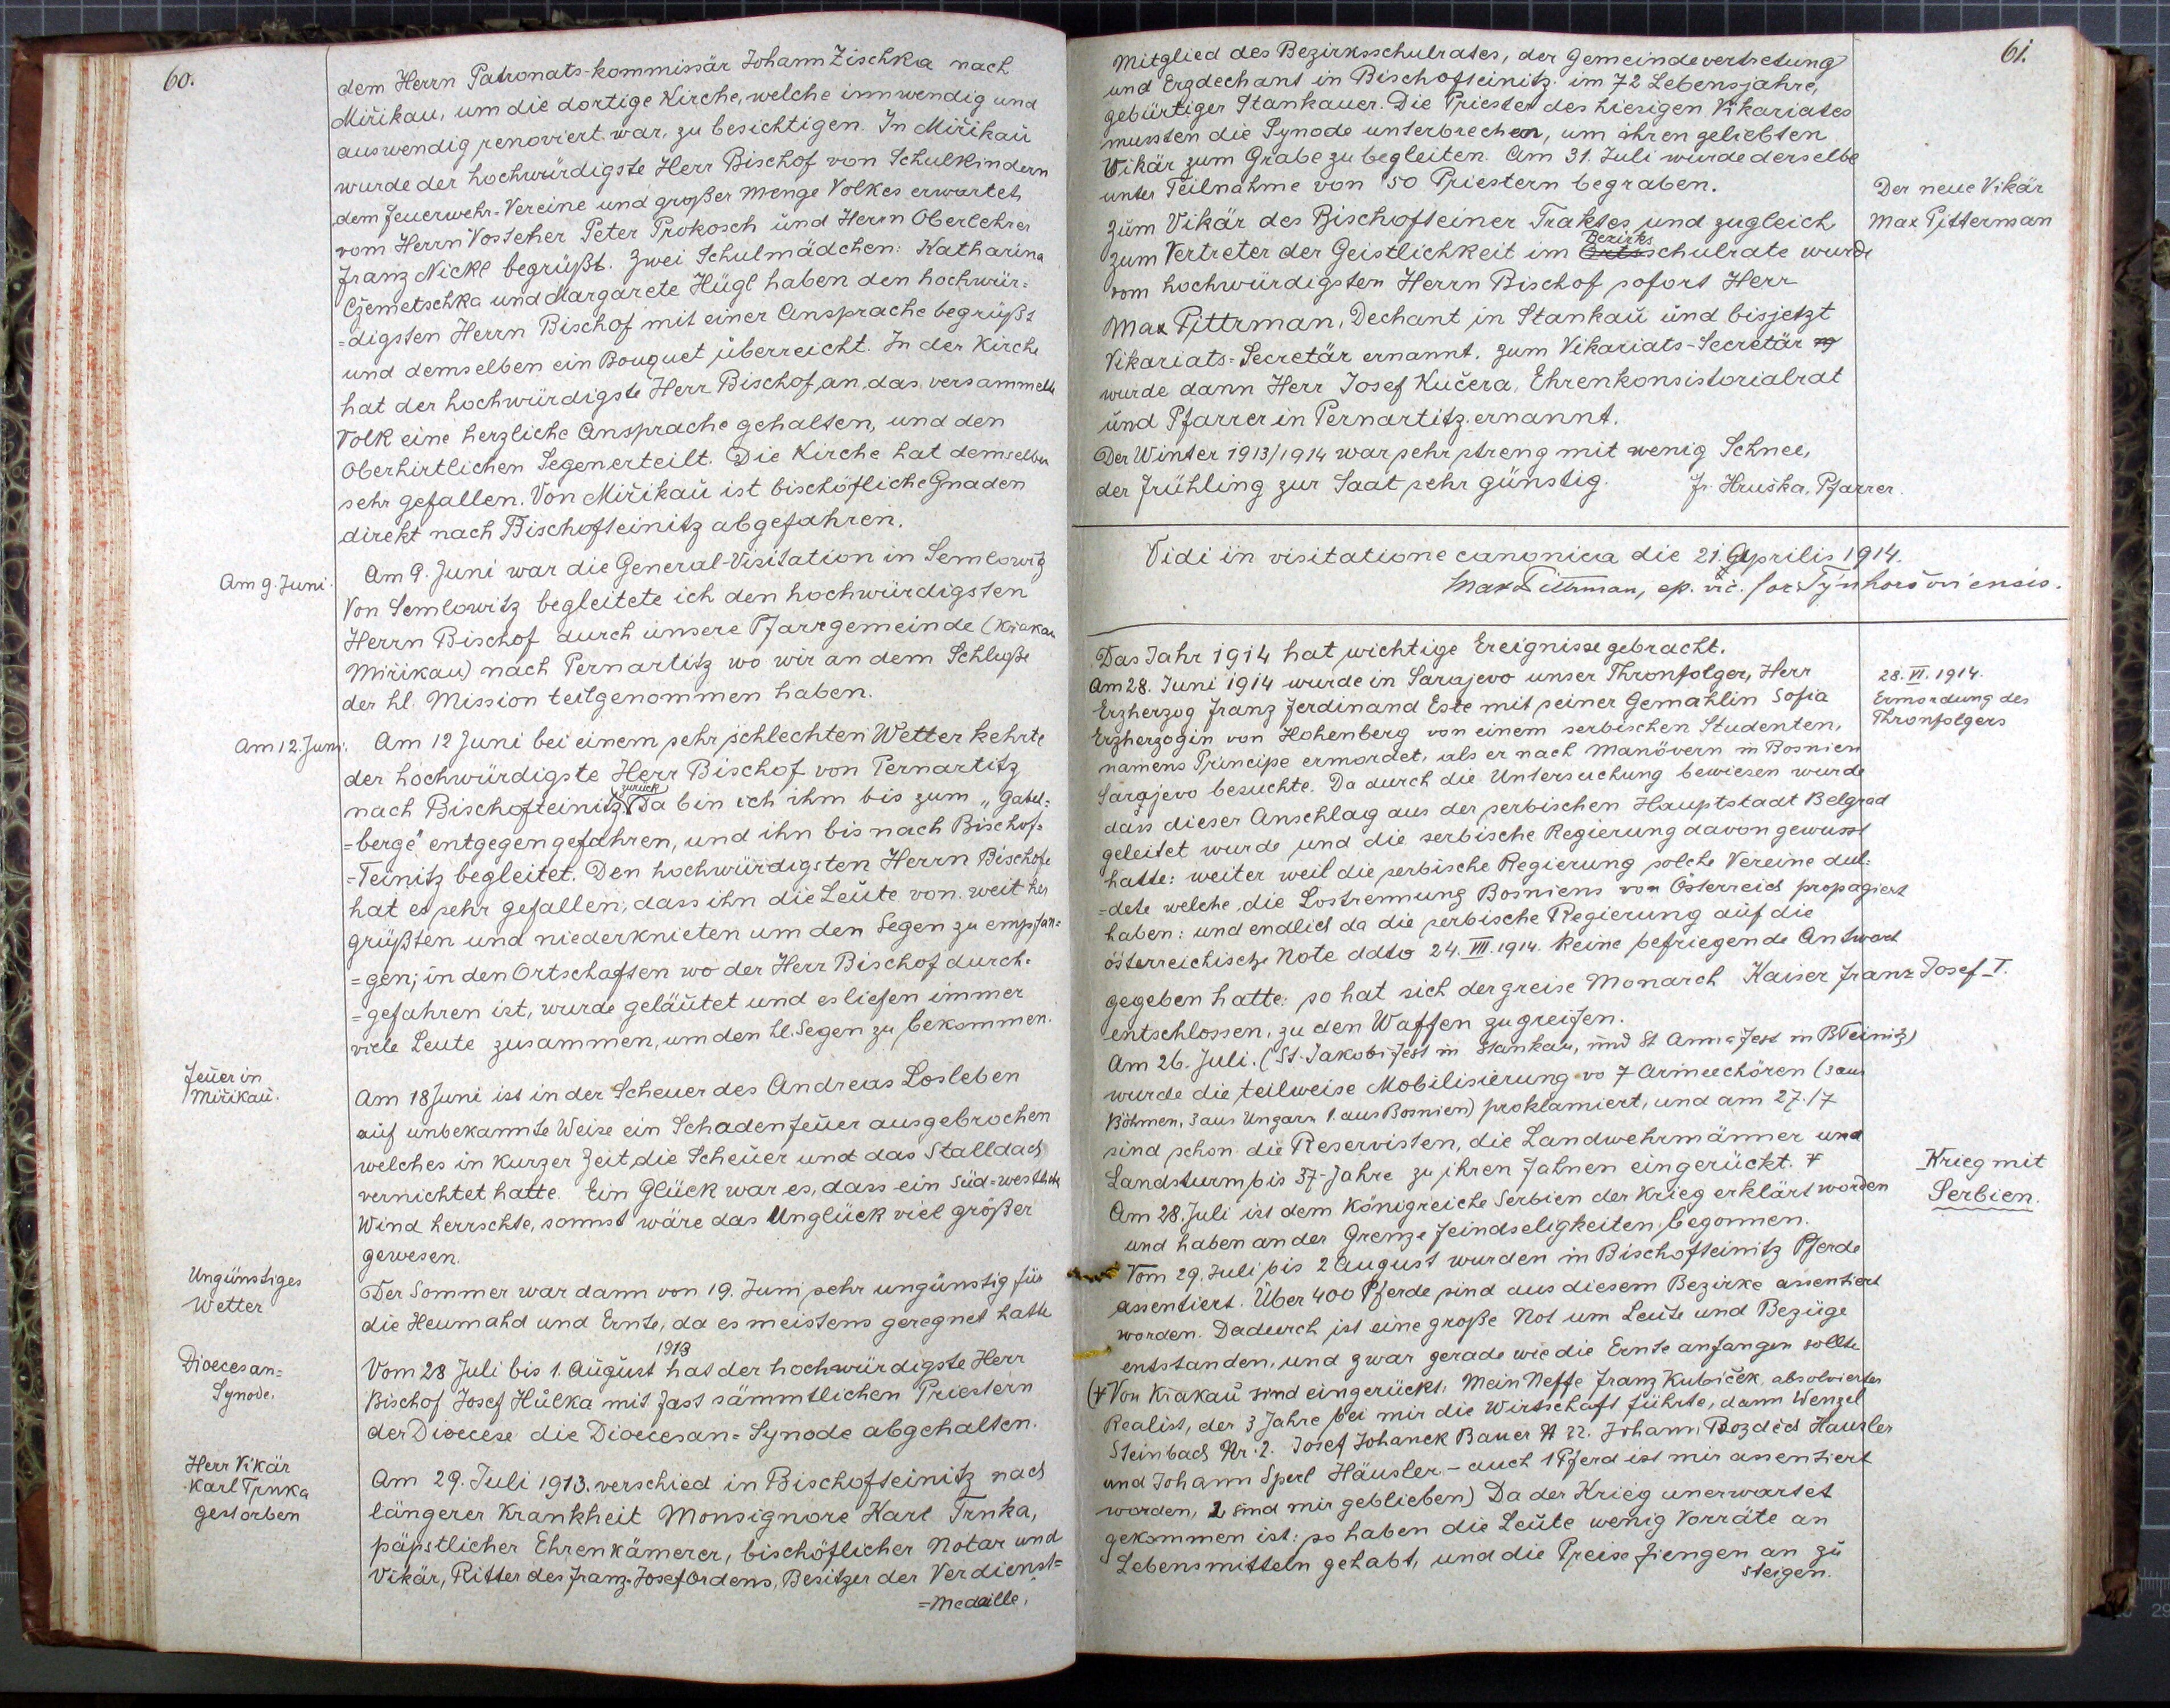 60.
dem Herrn Patronats-kommissär Johann Zischka nach
Miřikau, um die dortige Kirche, welche innwendig und
auswendig renoviert war, zu besichtigen. In Miřikau
wurde der hochwürdigste Herr Bischof von Schulkindern
dem Feuerwehr-Vereine und großer Menge Volkes erwartet
vom Herrn Vosteher Peter Prokosch und Herrn Oberlehrer
Franz Nickl begrüßt. Zwei Schulmädchen: Katharina
Czemetschka und Margarete Hügl haben den hochwür=
=digsten Herrn Bischof mit einer Ansprache begrüßt
und demselben ein Bouquet überreicht. In der Kirche
hat der hochwürdigste Herr Bischof an das versammelte
Volk eine herzliche Ansprache gehalten, und den
Oberhirtlichen Segen erteilt. Die Kirche hat demselben
sehr gefallen. Von Miřikau ist bischöfliche Gnaden
direkt nach Bischofteinitz abgefahren.
Am 9. Juni.
Am 9. Juni war die General-Visitation in Semlowitz
Von Semlowitz begleitete ich den hochwürdigsten
Herrn Bischof durch unsere Pfarrgemeinde (Křakau
Miřikau) nach Pernartitz wo wir an dem Schluße
der hl. Mission teilgenommen haben.
Am 12. Juni.
Am 12 Juni bei einem sehr schlechten Wetter kehrte
der hochwürdigste Herr Bischof von Pernartitz
nach Bischofteinitz zurück. Da bin ich ihm bis zum „Gabel=
=berge" entgegengefahren, und ihn bis nach Bischof=
=Teinitz begleitet. Den hochwürdigsten Herrn Bischofe
hat es sehr gefallen, dass ihn die Leute von weit her
grüßten und niederknieten um den Segen zu empfan=
=gen; in den Ortschaften wo der Herr Bischof durch=
=gefahren ist, wurde geläutet und es liefen immer
viele Leute zusammen, um den hl. Segen zu bekommen.
Feuer in
Miřikau.
Am 18 Juni ist in der Scheuer des Andreas Losleben
auf unbekannte Weise ein Schadenfeuer ausgebrochen
welches in kurzer Zeit, die Scheuer und das Stalldach
vernichtet hatte. Ein Glück war es, dass ein Süd=westlicher
Wind herrschte, sonnst wäre das Unglück viel größer
gewesen.
Ungünstiges
Wetter
Der Sommer war dann von 19. Juni sehr ungünstig für
die Heumahd und Ernte, da es meistens geregnet hatte
Dioecesan=
Synode.
Vom 28 Juli bis 1. August 1913 hat der hochwürdigste Herr
Bischof Josef Hůlka mit fast sämmtlichen Priestern
der Dioecese die Dioecesan=Synode abgehalten.
Herr Vikär
Karl Trnka
gestorben
Am 29. Juli 1913. verschied in Bischofteinitz nach
längerer Krankheit Monsignore Karl Trnka,
päpstlicher Ehrenkämerer, bischöflicher Notar und
Vikär, Ritter des Franz-Josefordens, Besitzer der Verdienst=
=Medaille,
61.
Mitglied des Bezirksschulrates, der Gemeindevertretung
und Erzdechant in Bischofteinitz im 72 Lebensjahre,
gebürtiger Stankauer. Die Priester des hiesigen Vikariates
mussten die Synode unterbrechen, um ihren geliebten
Vikär zum Grabe zu begleiten. Am 31. Juli wurde derselbe
unter Teilnahme von 50 Priestern begraben.
Der neue Vikär
Max Pitterman
Zum Vikär des Bischofteiner Traktes und zugleich
zum Vertreter der Geistlichkeit im Orts Bezirksschulrate wurde
vom hochwürdigsten Herrn Bischof sofort Herr
Max Pittrman, Dechant in Stankau und bisjetzt
Vikariats=Secretär ernannt. Zum Vikariats-Secretär
wurde dann Herr Josef Kučera, Ehrenkonsistorialrat
und Pfarrer in Pernartitz ernannt.
Der Winter 1913/1914 war sehr streng mit wenig Schnee,
der Frühling zur Saat sehr günstig. Fr. Hruška, Pfarrer.
Vidi in visitatione canonica die 21. Aprilis 1914.
Max Pittrman, ep. vic. for. Týnhoršoviensis.
Das Jahr 1914 hat wichtige Ereignisse gebracht.
28. VI. 1914.
Ermordung des
Thronfolgers
Am 28. Juni 1914 wurde in Sarajevo unser Thronfolger, Herr
Erzherzog Franz Ferdinand Este mit seiner Gemahlin Sofia
Erzherzogin von Hohenberg von einem serbischen Studenten,
namens Principe ermordet, als er nach Manövern in Bosnien
Sarajevo besuchte. Da durch die Untersuchung bewiesen wurde
dass dieser Anschlag aus der serbischen Hauptstadt Belgrad
geleitet wurde und die serbische Regierung davon gewusst
hatte: weiter weil die serbische Regierung solche Vereine dul=
=dete welche die Lostrennung Bosniens von Österreich propagiert
haben: und endlich da die serbische Regierung auf die
österreichische Note ddto 24. VII. 1914. keine befriegende Antwort
gegeben hatte: so hat sich der greise Monarch Kaiser Franz Josef I.
entschlossen, zu den Waffen zu greifen.
Am 26. Juli. (St. Jakobifest in Stankau, und St Annafest in B.Teinitz)
wurde die teilweise Mobilisierung vo 7 Armeechören (3 aus
Böhmen, 3 aus Ungarn 1. aus Bosnien) proklamiert, und am 27./7
sind schon die Reservisten, die Landwehrmänner und
Landsturm bis 37-Jahre zu ihren Fahnen eingerückt. +
Krieg mit
Serbien.
Am 28. Juli ist dem Königreiche Serbien der Krieg erklärt worden
und haben an der Grenze Feindseligkeiten begonnen.
Vom 29. Juli bis 2 August wurden in Bischofteinitz Pferde
assentiert. Über 400 Pferde sind aus diesem Bezirke assentiert
worden. Dadurch ist eine große Not um Leute und Bezüge
entstanden, und zwar gerade wie die Ernte anfangen sollte
(+ Von Křakau sind eingerückt, Mein Neffe Franz Kubíček, absolvierter
Realist, der 3 Jahre bei mir die Wirtschaft führte, dann Wenzel
Steinbach Nr. 2. Josef Johanek Bauer N 22. Johann Bozděch Häusler
und Johann Sperl Häusler - auch 1 Pferd ist mir assentiert
worden, 2 sind mir geblieben) Da der Krieg unerwartet
gekommen ist: so haben die Leute wenig Vorräte an
Lebensmitteln gehabt, und die Preise fiengen an zu
steigen.